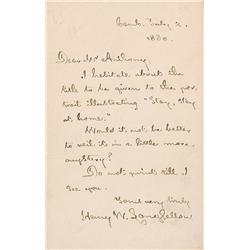 Camb. July 2.
1880.
Dear Mr Anthony,
I hesitate about the
title to be given to the por-
trait illustrating "Stay, stay
at home."
Would it not be better
to veil it in a little more
mystery?
Do not print till I
see you.
Yours very truly
Henry W. Longfellow